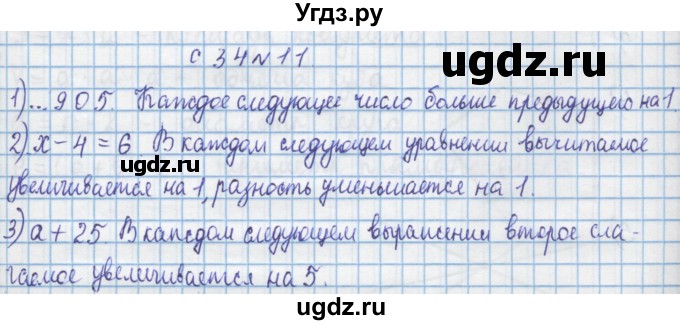 Угдз.ру
с 34 № 11
1) ...905. Каждое следующее число больше предыдущего на 1.
2) x - 4 = 6 В каждом следующем уравнении вычитаемое
увеличивается на 1, разность уменьшается на 1.
3) а + 25. В каждом следующем выражении второе сла-
гаемое увеличивается на 5.
ugdz.ru
ugdz.ru
ugdz.ru
ugdz.ru
ugdz.ru